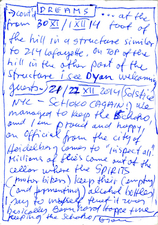 Scout's DREAMS ... at the
from 30 XI / 1 XII 14 foot of
the hill in a structure similar
to 214 Lafayette, on top of the
hill in the other part of the
structure i see Dyan welcoming
guests – 21/22 XII 2014 (Solstice
NYC – SCHOKO (AGAIN!) We
managed to keep the Schoko,
and i'm proud and happy,
an Official from the city of
Heidelberg comes to "inspect" all.
Millions of flies come out of the
cellar where the SPIRITS
keep their (empty)
(and fermenting) alcohol bottles
i pay no matter that it was
basically
keeping the Schoko